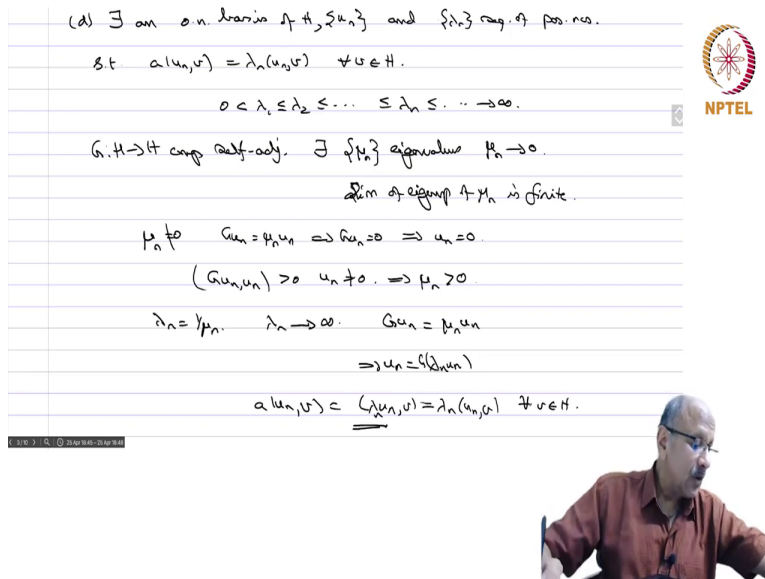 (d) ∃ an o.n. basis of H, {uₙ} and {λₙ} seq. of pos. nos.
s.t. a(uₙ,v) = λₙ(uₙ,v) ∀ v ∈ H.
0 < λ₁ ≤ λ₂ ≤ ... ≤ λₙ ≤ ... → ∞.
G: H → H comp self-adj. ∃ {μₙ} eigenvalues μₙ → 0.
Dim of eigensp of μₙ is finite.
μₙ ≠ 0 Guₙ = μₙuₙ ⇒ Guₙ = 0 ⇒ uₙ = 0.
(Guₙ,uₙ) > 0 uₙ ≠ 0. ⇒ μₙ > 0
λₙ = 1/μₙ. λₙ → ∞. Guₙ = μₙuₙ
⇒ uₙ = G(λₙuₙ)
a(uₙ,v) = (λₙuₙ,v) = λₙ(uₙ,v) ∀ v ∈ H.
NPTEL
3/10 25 Apr 18:45 - 25 Apr 18:48